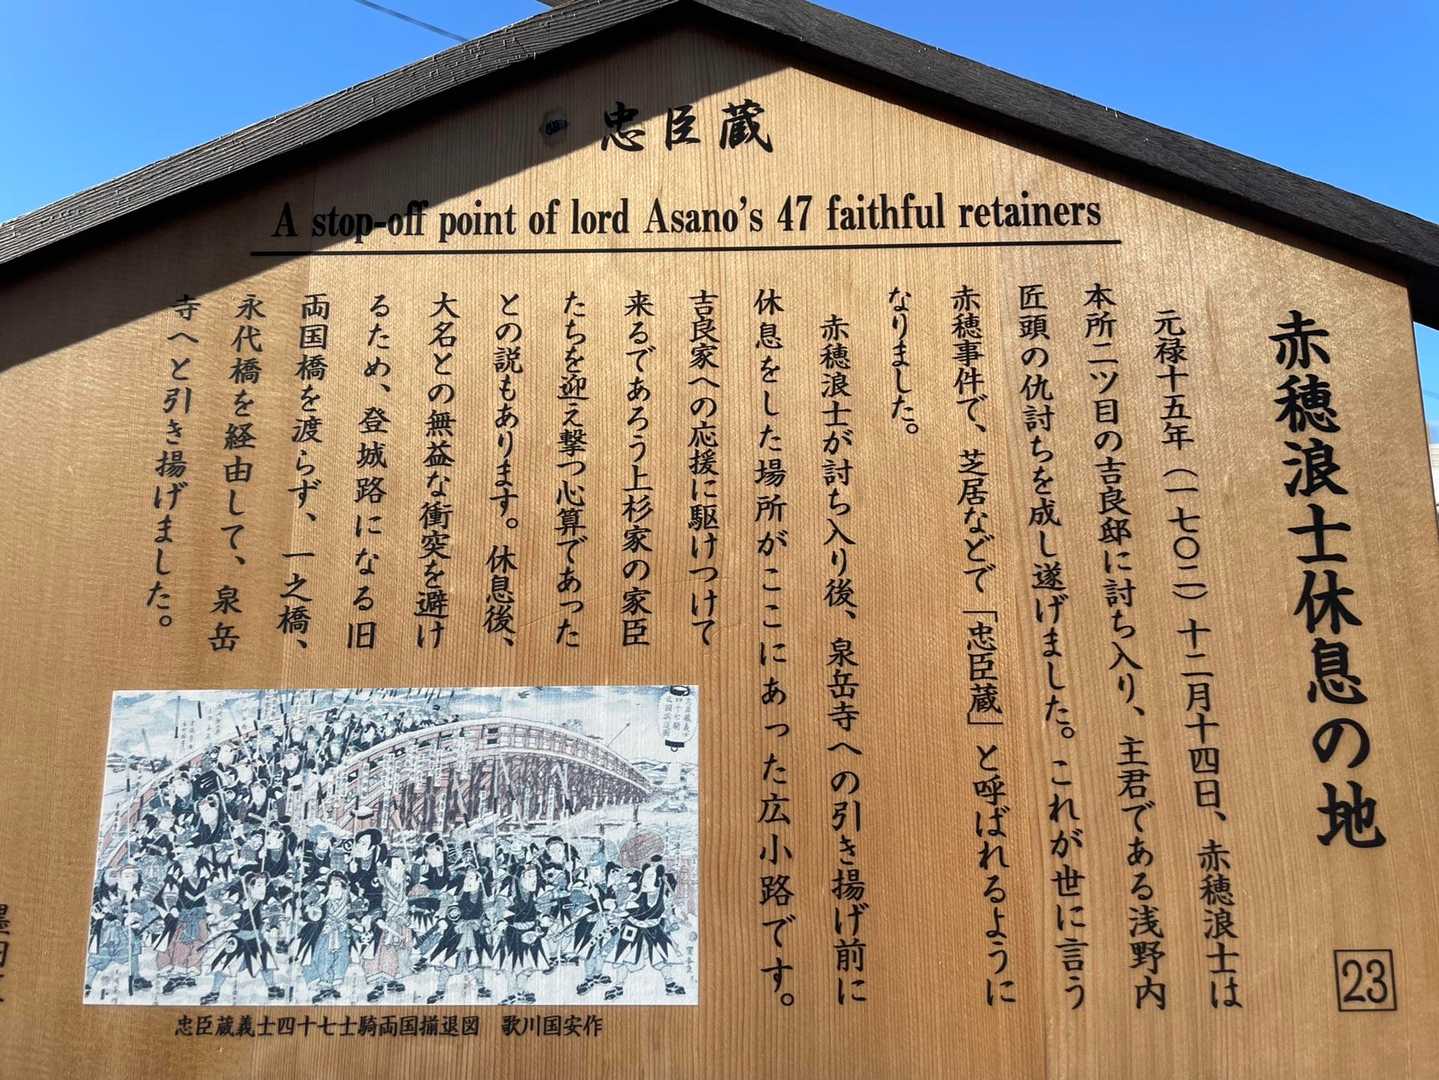 忠臣蔵
A stop-off point of lord Asano's 47 faithful retainers
赤穂浪士休息の地
23
元禄十五年（一七〇二）十二月十四日、赤穂浪士は
本所二ツ目の吉良邸に討ち入り、主君である浅野内
匠頭の仇討ちを成し遂げました。これが世に言う
赤穂事件で、芝居などで「忠臣蔵」と呼ばれるように
なりました。
赤穂浪士が討ち入り後、泉岳寺への引き揚げ前に
休息をした場所がここにあった広小路です。
吉良家への応援に駆けつけて
来るであろう上杉家の家臣
たちを迎え撃つ心算であった
との説もあります。休息後、
大名との無益な衝突を避け
るため、登城路になる旧
両国橋を渡らず、一之橋、
永代橋を経由して、泉岳
寺へと引き揚げました。
忠臣蔵義士四十七士騎両国揃退図　歌川国安作